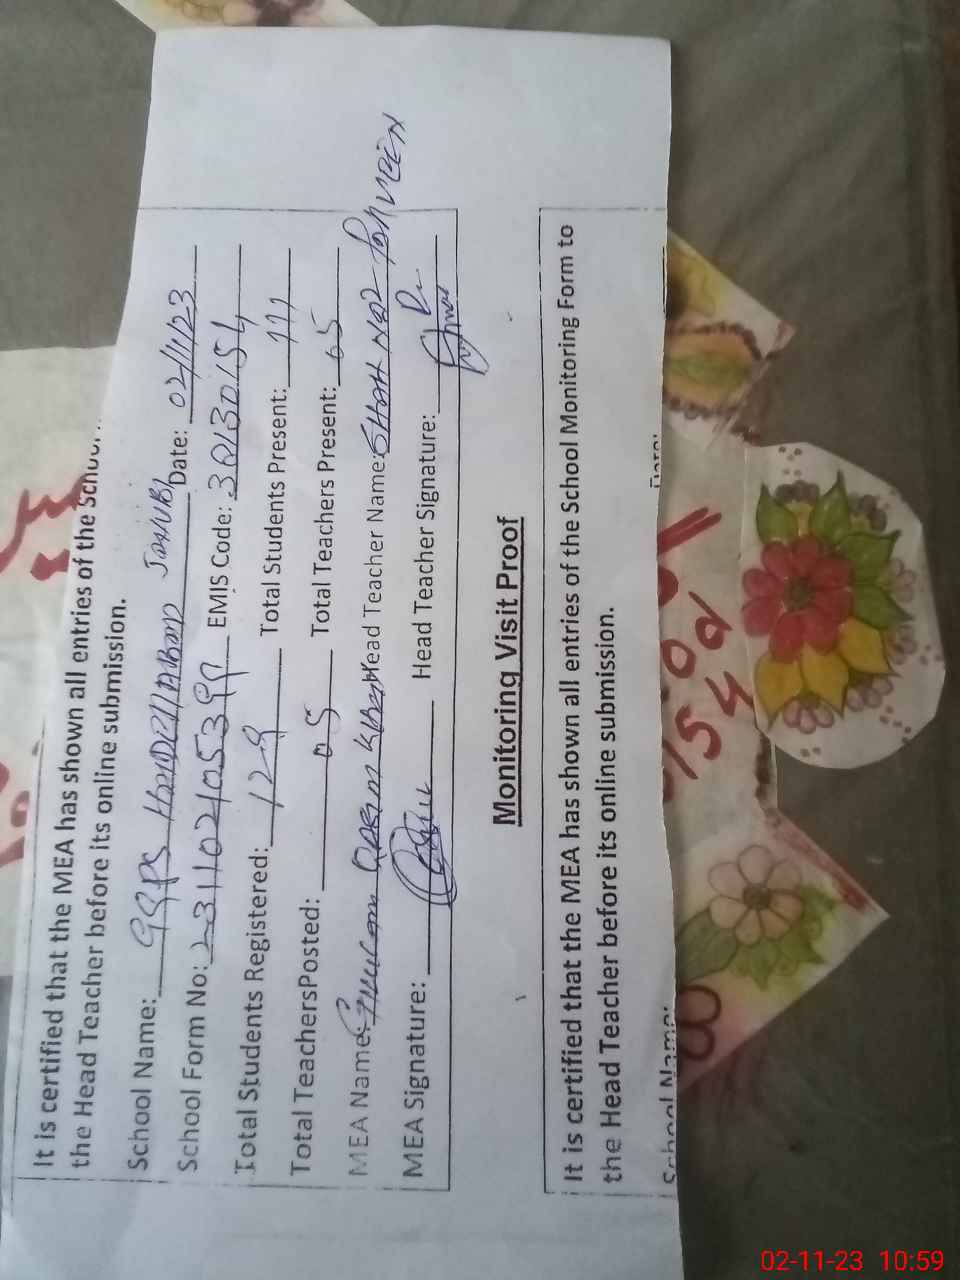 It is certified that the MEA has shown all entries of the School
the Head Teacher before its online submission.
School Name: GGPS HAIDERABAD JANUBI Date: 02/11/23
School Form No: EMIS Code: 38130154
Total Students Registered: 129 Total Students Present: 111
Total TeachersPosted: 05 Total Teachers Present: 05
MEA Name: Ghulam Qasim Khan Head Teacher Name: SHAH NAZ
MEA Signature: Head Teacher Signature:
Monitoring Visit Proof
It is certified that the MEA has shown all entries of the School Monitoring Form to
the Head Teacher before its online submission.
School Name: Date:
02-11-23 10:59